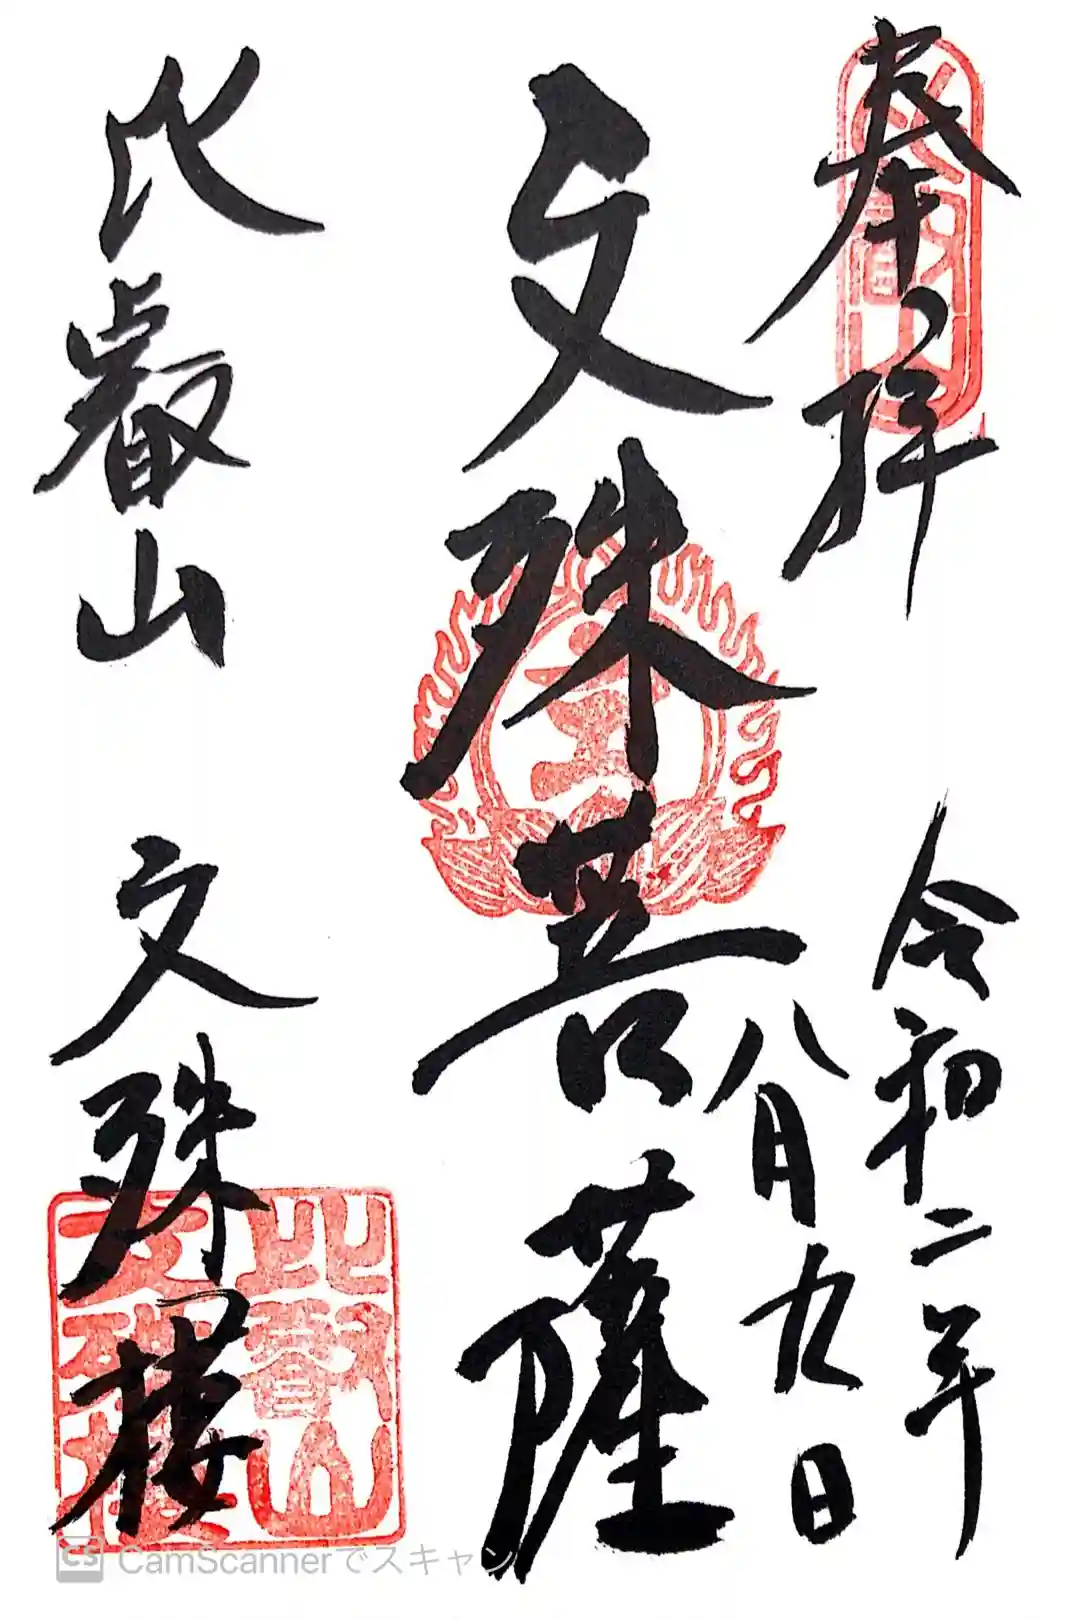 奉拝
令和二年
八月九日
文殊菩薩
比叡山 文殊楼
比叡山
比叡山
文殊楼
CS CamScannerでスキャン